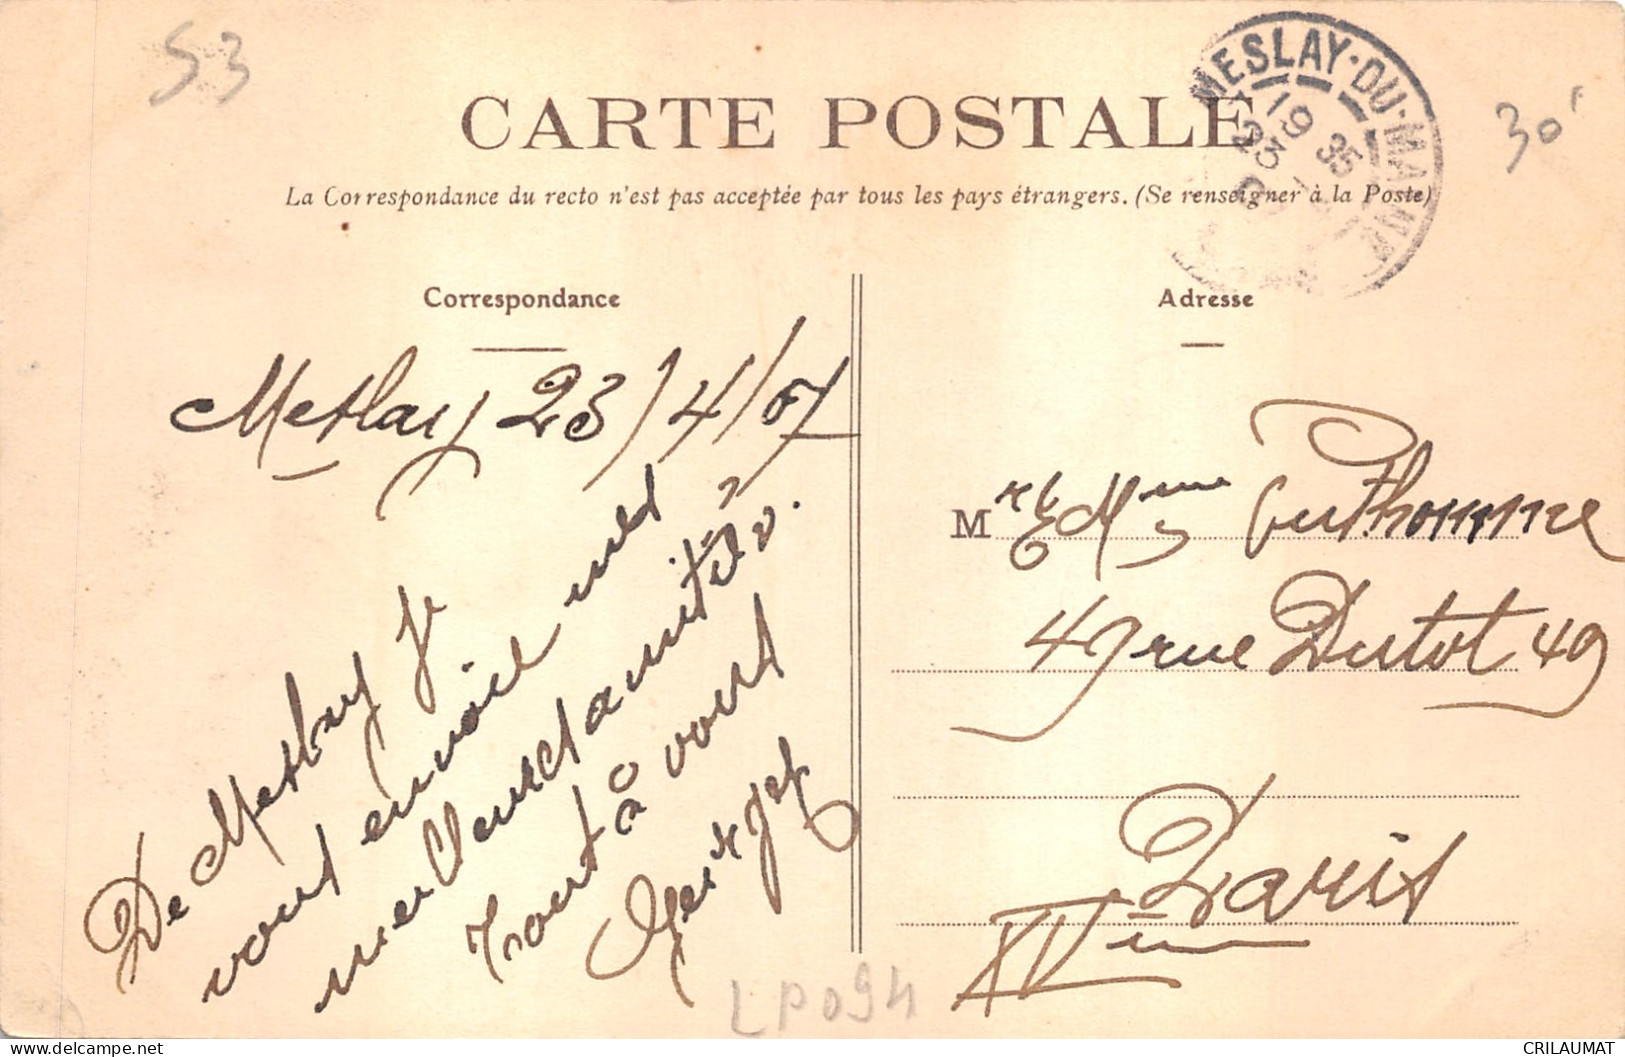 53
CARTE POSTALE
MESLAY-DU-MAINE
19 35
23
30f
La Correspondance du recto n'est pas acceptée par tous les pays étrangers. (Se renseigner à la Poste)
Correspondance
Meslay 23/4/07
De Meslay je
vous envoie mes
meilleures amitiés.
Tout à vous
Georges
Adresse
Mr et Mme Prthomme
49 rue Dutot 49
Paris
XVème
LP094
https://www.delcampe.net
CRILAUMAT